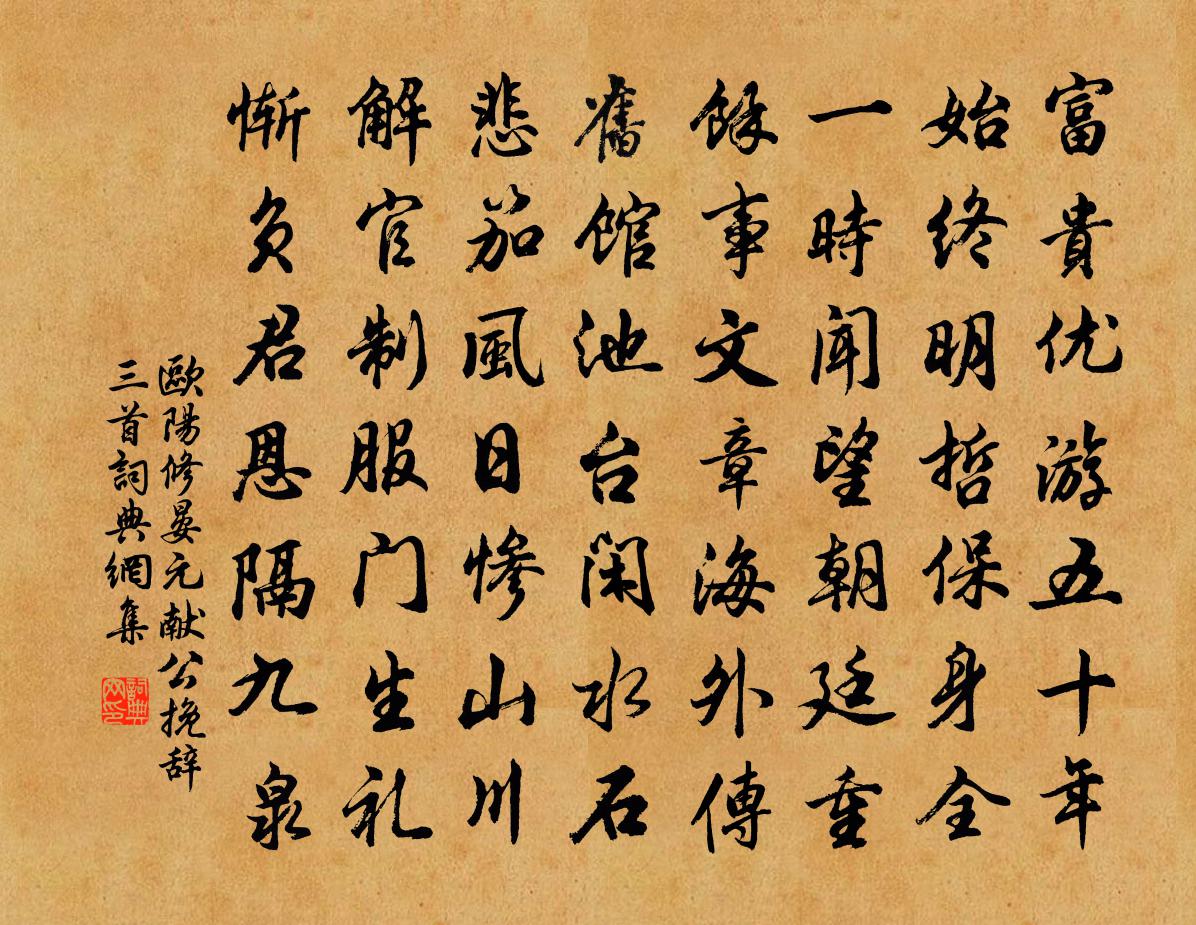 富貴优游五十年
始终明哲保身全
一時聞望朝廷重
餘事文章海外傳
舊館池台闲水石
悲笳風日惨山川
解官制服门生礼
惭负君恩隔九泉
歐陽修晏元献公挽辞
三首詞典網集
詞典网印